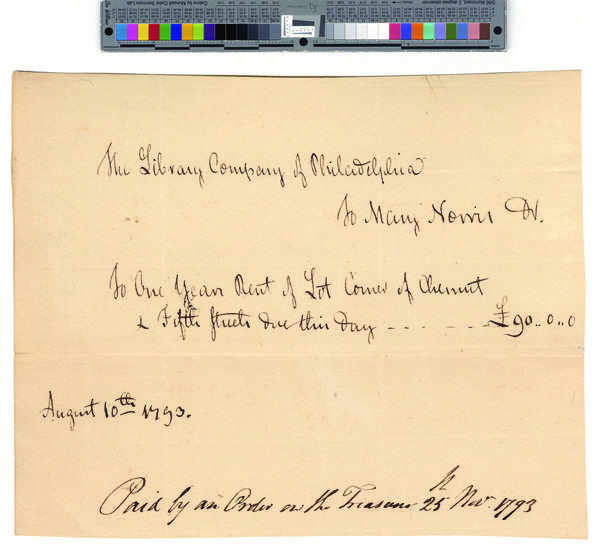 The Library Company of Philadelphia
To Mary Norris Dr.
To One Years Rent of Lot Corner of Chesnut
& Fifth Streets due this Day - - - - - £90..0..0
August 10th 1793.
Paid by an Order on the Treasurer 25th Novr. 1793